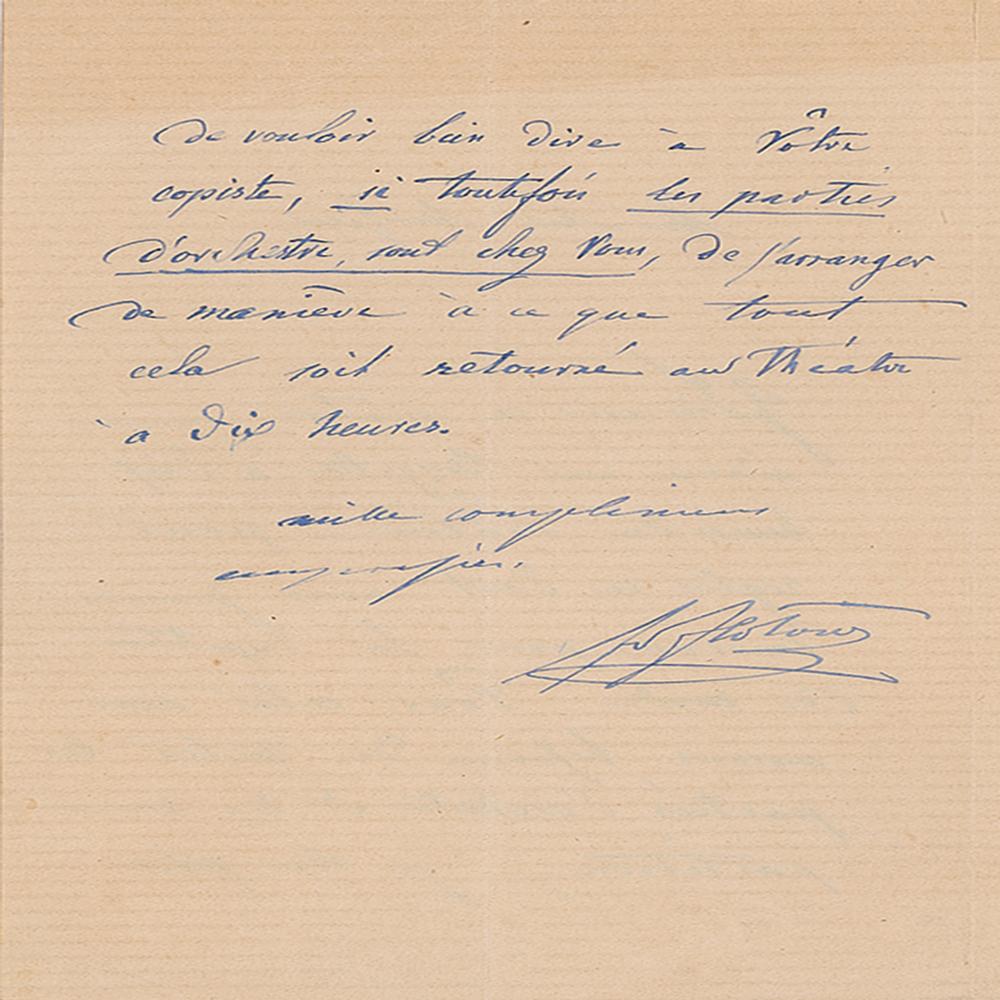 de vouloir bien dire à Vôtre
copiste, si toutefois les parties
d'orchestre, sont chez Vous, de s'arranger
de manière à ce que tout
cela soit retourné au Théâtre
à Dix heures.
mille complimens
empressés.